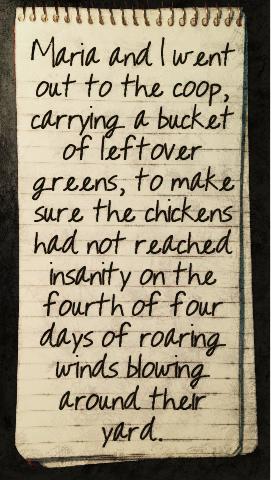 Maria and I went
out to the coop,
carrying a bucket
of leftover
greens, to make
sure the chickens
had not reached
insanity on the
fourth of four
days of roaring
winds blowing
around their
yard.